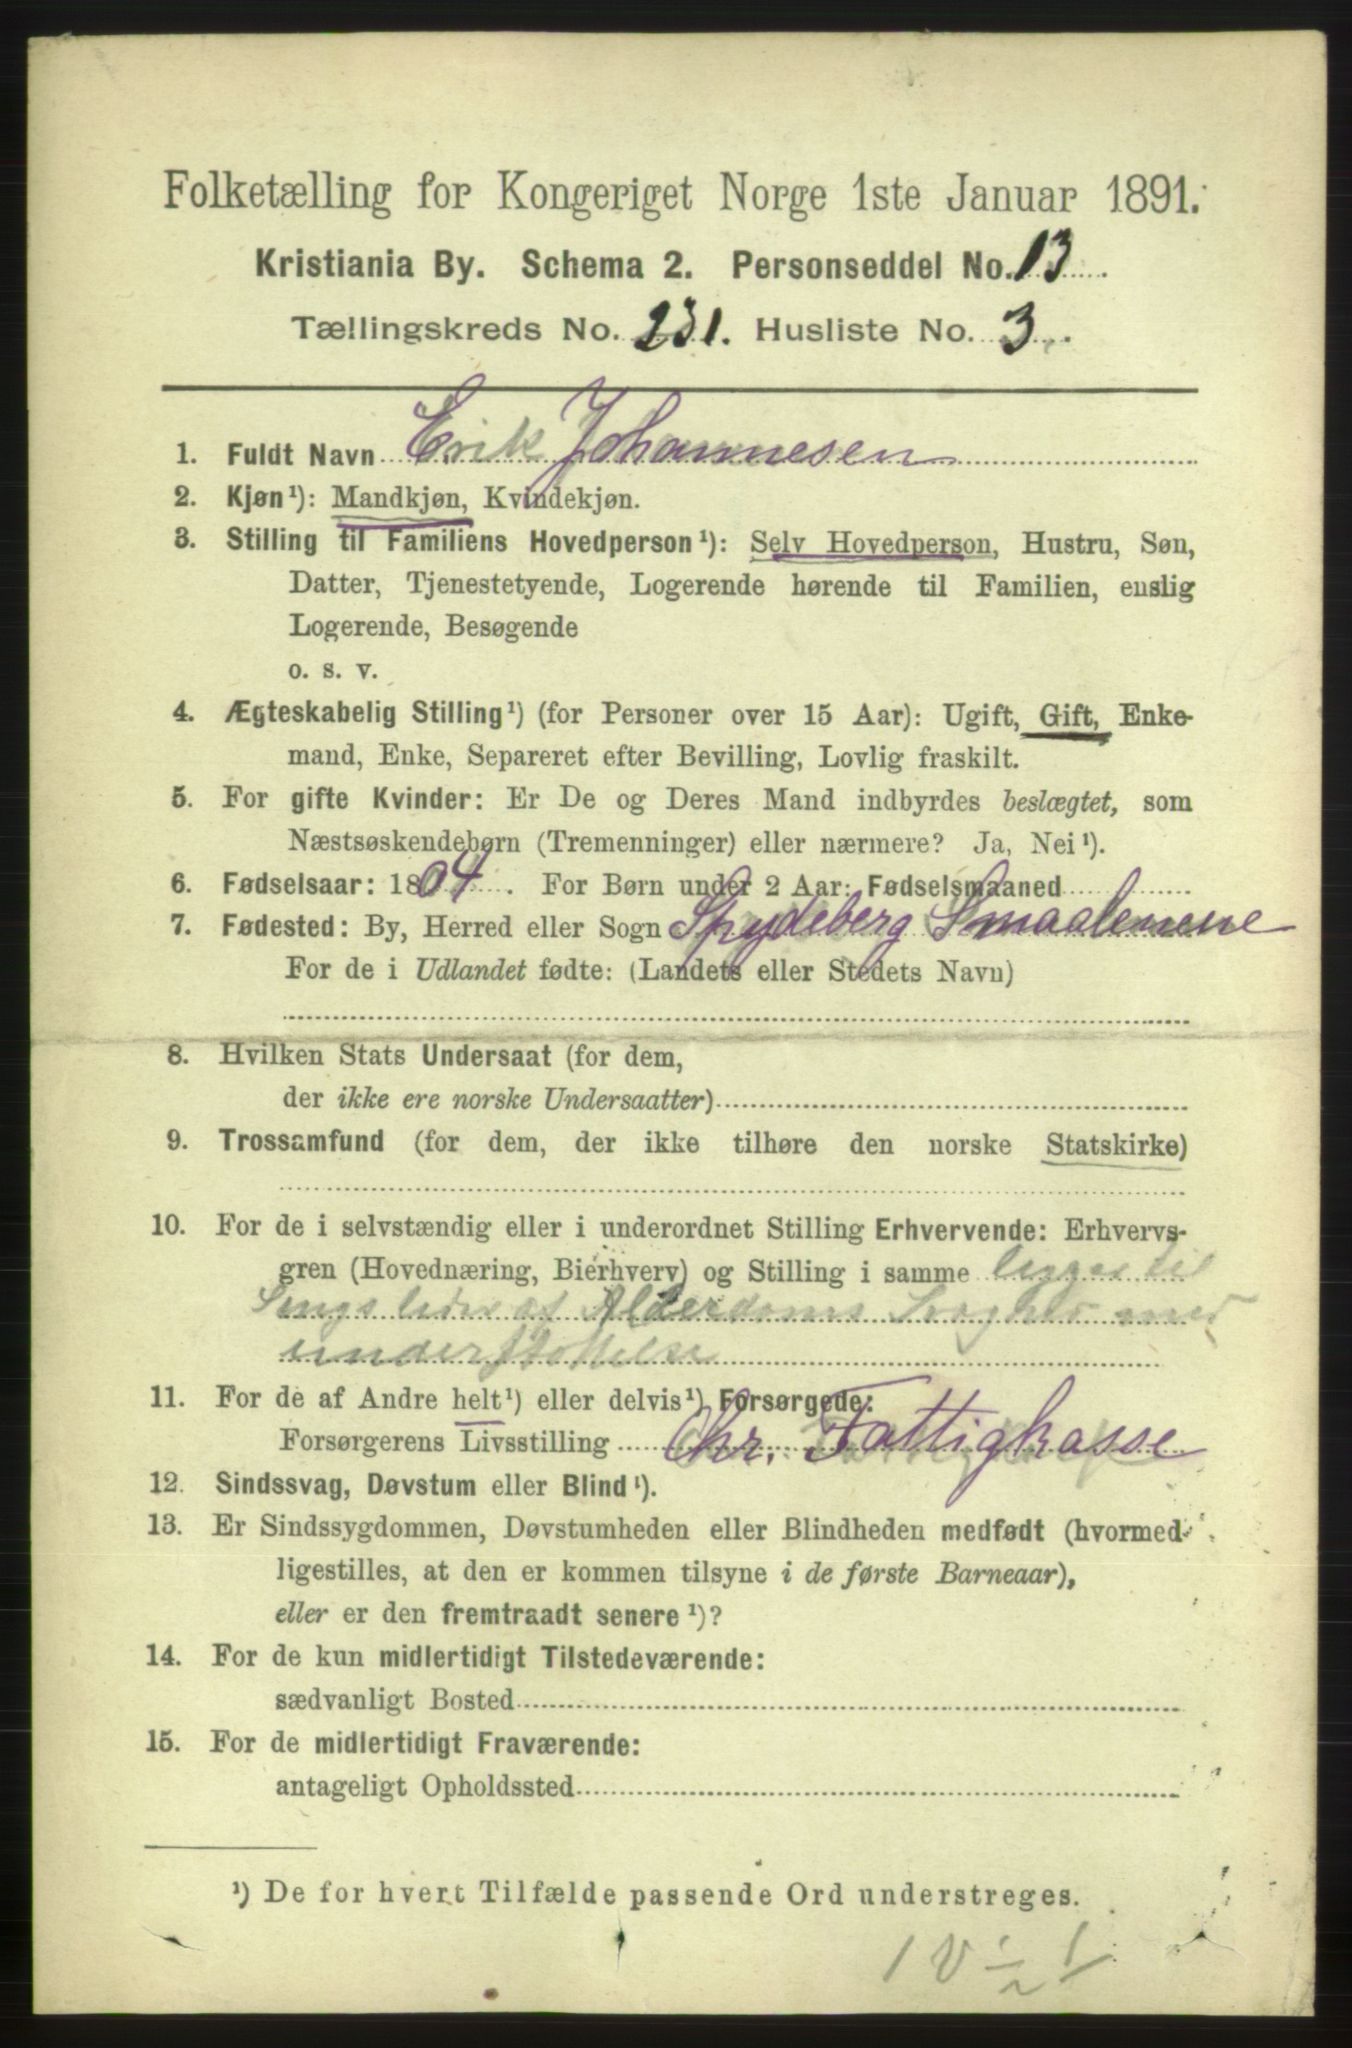 Folketælling for Kongeriget Norge 1ste Januar 1891.
Kristiania By. Schema 2. Personseddel No. 13
Tællingskreds No. 231. Husliste No. 3
1. Fuldt Navn Erik Johannesen
2. Kjøn¹): Mandkjøn, Kvindekjøn.
3. Stilling til Familiens Hovedperson¹): Selv Hovedperson, Hustru, Søn,
Datter, Tjenestetyende, Logerende hørende til Familien, enslig
Logerende, Besøgende
o. s. v.
4. Ægteskabelig Stilling¹) (for Personer over 15 Aar): Ugift, Gift, Enke-
mand, Enke, Separeret efter Bevilling, Lovlig fraskilt.
5. For gifte Kvinder: Er De og Deres Mand indbyrdes beslægtet, som
Næstsøskendebørn (Tremenninger) eller nærmere? Ja, Nei¹).
6. Fødselsaar: 1804. For Børn under 2 Aar: Fødselsmaaned
7. Fødested: By, Herred eller Sogn Spydeberg Smaalenene
For de i Udlandet fødte: (Landets eller Stedets Navn)
8. Hvilken Stats Undersaat (for dem,
der ikke ere norske Undersaatter)
9. Trossamfund (for dem, der ikke tilhøre den norske Statskirke)
10. For de i selvstændig eller i underordnet Stilling Erhvervende: Erhvervs-
gren (Hovednæring, Bierhverv) og Stilling i samme ligger til
Sengs lider af Alderdoms Svaghed med
understøttelse
11. For de af Andre helt¹) eller delvis¹) Forsørgede:
Forsørgerens Livsstilling Chr. Fattigkasse
12. Sindssvag, Døvstum eller Blind¹).
13. Er Sindssygdommen, Døvstumheden eller Blindheden medfødt (hvormed
ligestilles, at den er kommen tilsyne i de første Barneaar),
eller er den fremtraadt senere¹)?
14. For de kun midlertidigt Tilstedeværende:
sædvanligt Bosted
15. For de midlertidigt Fraværende:
antageligt Opholdssted
¹) De for hvert Tilfælde passende Ord understreges.